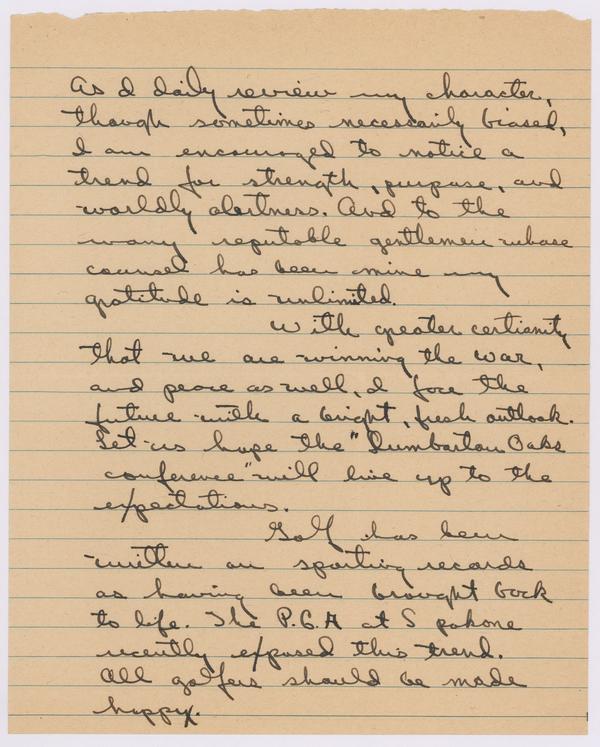 As I daily review my character,
though sometimes necessarily biased,
I am encouraged to notice a
trend for strength, purpose, and
worldly alertness. And to the
many reputable gentlemen whose
counsel has been mine my
gratitude is unlimited.
With greater certianity
that we are winning the war,
and peace as well, I face the
future with a bright, fresh outlook.
Let us hope the "Dumbarton Oaks
conference" will live up to the
expectations.
Golf has been
written on sporting records
as having been brought back
to life. The P.G.A at Spokone
recently exposed this trend.
All golfers should be made
happy.